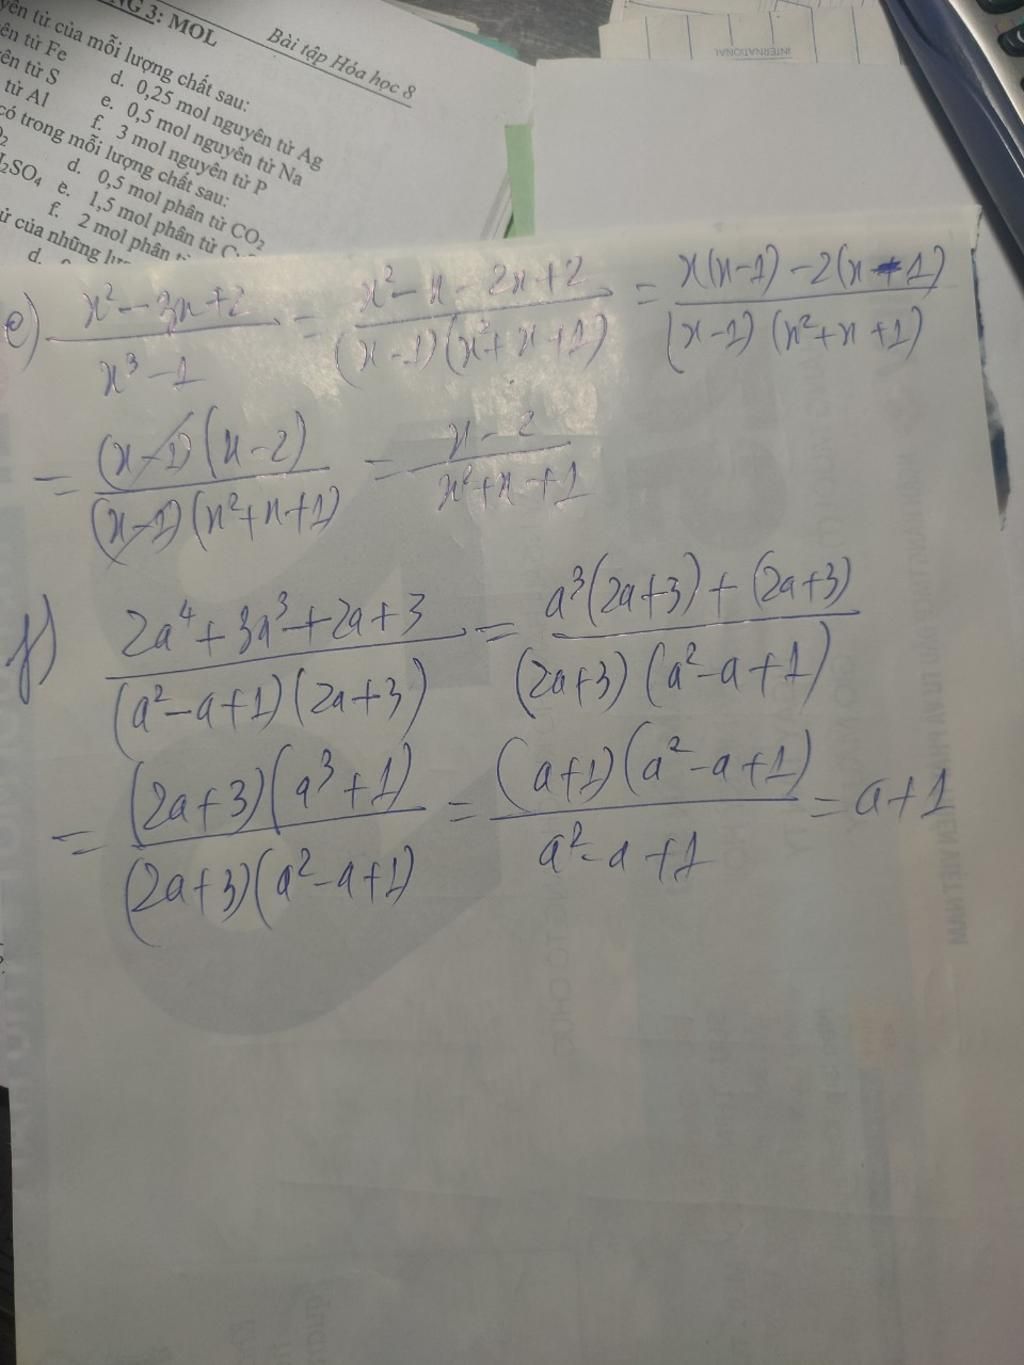 NG 3: MOL
Bài tập Hóa học 8
yên tử của mỗi lượng chất sau:
ên tử Fe
d. 0,25 mol nguyên tử Ag
ên tử S
e. 0,5 mol nguyên tử Na
tử Al
f. 3 mol nguyên tử P
có trong mỗi lượng chất sau:
d. 0,5 mol phân tử CO₂
₂SO₄
e. 1,5 mol phân tử
f. 2 mol phân
ử của những
d.
INTERNATIONAL
e) \frac{x²-3x+2}{x³-1} = \frac{x²-x-2x+2}{(x-1)(x²+x+1)} = \frac{x(x-1)-2(x-1)}{(x-1)(x²+x+1)}
= \frac{(x-1)(x-2)}{(x-1)(x²+x+1)} = \frac{x-2}{x²+x+1}
f) \frac{2a⁴+3a³+2a+3}{(a²-a+1)(2a+3)} = \frac{a³(2a+3)+(2a+3)}{(2a+3)(a²-a+1)}
= \frac{(2a+3)(a³+1)}{(2a+3)(a²-a+1)} = \frac{(a+1)(a²-a+1)}{a²-a+1} = a+1